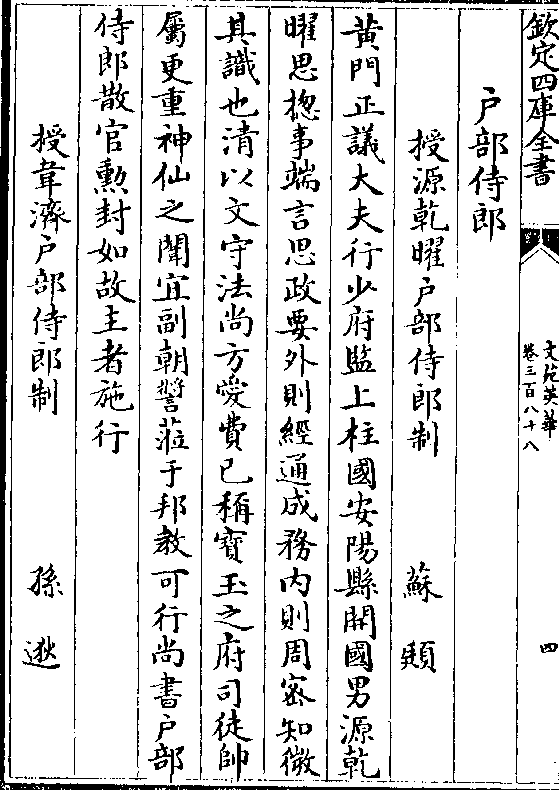 欽定四庫全書
文苑英華
卷三百八十八
四
戶部侍郎
授源乾曜戶部侍郎制 蘇頲
黃門正議大夫行少府監上柱國安陽縣開國男源乾
曜思揔事端言思政要外則經通成務内則周宻知微
其識也清以文守法尚方愛費已稱寳玉之府司徒帥
屬更重神仙之闈宜副朝奬蒞于邦教可行尚書戶部
侍郎散官勲封如故主者施行
授韋濟戶部侍郎制 孫逖